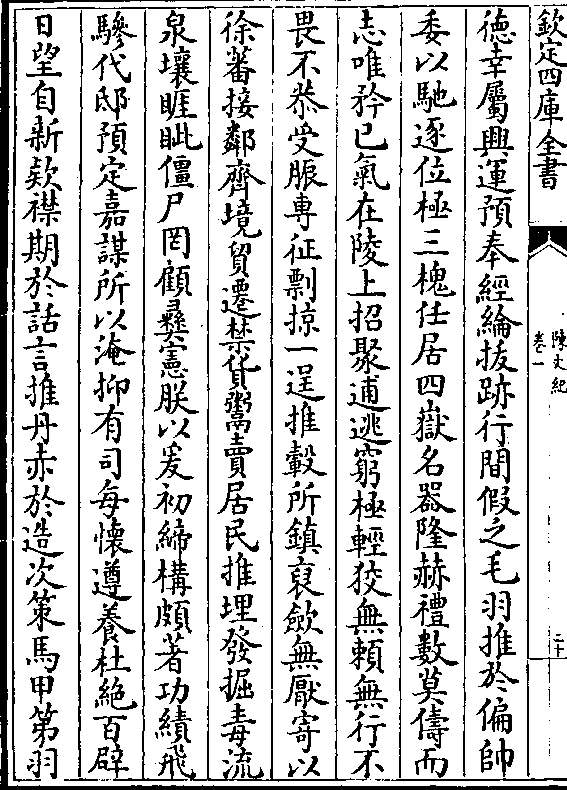 欽定四庫全書
陳文紀
卷一
二十
德幸屬興運預奉經綸拔跡行間假之毛羽推於偏帥
委以馳逐位極三槐任居四嶽名器隆赫禮數莫儔而
志唯矜已氣在陵上招聚逋逃窮極輕狡無賴無行不
畏不恭受脤專征剽掠一逞推轂所鎮裒歛無厭寄以
徐蕃接鄰齊境貿遷禁貨鬻賣居民推埋發掘毒流
泉壤睚眦僵尸罔顧彛憲朕以爰初締構頗著功績飛
驂代邸預定嘉謀所以淹抑有司每懷遵養杜絶百辟
日望自新欵襟期於話言推丹赤於造次策馬甲第羽